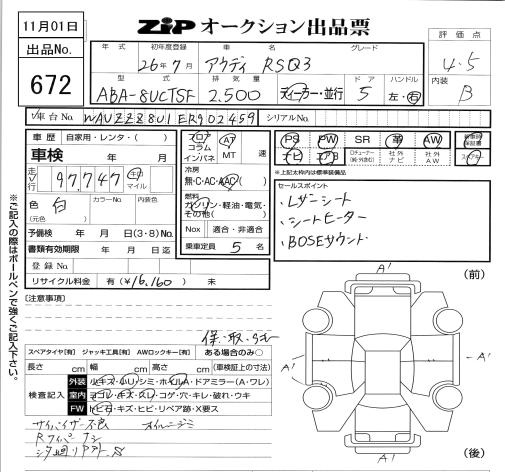 11月01日
ZiP オークション出品票
出品No.
672
年式 初年度登録 車名 グレード
26年7月 アウディ RSQ3
評価点
4.5
内装
B
型式 排気量 ドア ハンドル
ABA-8UCTSF 2,500 ディーラー・並行 5 左・右
車台No. WAUZZZ8U1ER902459 シリアルNo.
車歴 自家用・レンタ・( )
車検 年 月
走行 97,747 km マイル
色 白 カラーNo. 内装色
(元色)
予備検 年 月 日(3・8)No.
書類有効期限 年 月 日迄
登録No.
リサイクル料金 有(¥16,160) 未
フロア
コラム
インパネ
AT
MT 速
冷房
無・C・AC・AAC
燃料
ガソリン・軽油・電気・
その他( )
Nox 適合・非適合
乗車定員 5 名
PS PW SR 革 AW
ナビ
社外ナビ 社外AW
※上記太枠内は標準装備品
セールスポイント
・レザーシート
・シートヒーター
・BOSEサウンド
※ご記入の際はボールペンで強くご記入下さい。
[注意事項]
保・取・
スペアタイヤ[有] ジャッキ工具[有] AWロックキー[有] ある場合のみ〇
長さ cm 幅 cm 高さ cm (車検証上の寸法)
検査記入
外装 小キズ・小U・シミ・ホイルA・ドアミラー(A・ワレ)
室内 ヨゴレ・キズ・スレ・コゲ・穴・キレ・破れ・ウキ
FW トビ石・キズ・ヒビ・リペア跡・X要ス
サイバイザー不良 オイルニジミ
Rワイパーナシ
(前)
A'
A'
A'
A'
(後)